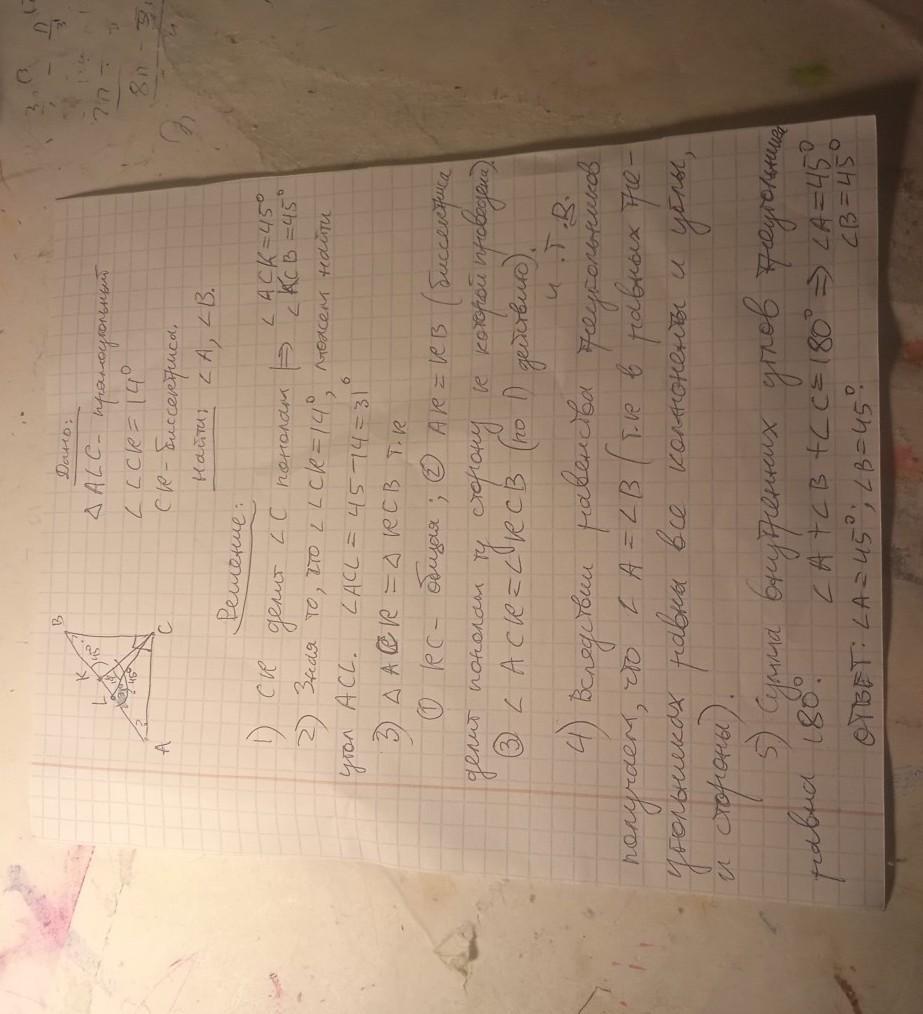 Дано:
△ALC - прямоугольный
∠LCK = 14°
CK - биссектриса.
Найти: ∠A, ∠B.
B
K
L
C
A
Решение:
1) CK делит ∠C пополам |⇒ ∠ACK = 45°
∠KCB = 45°
2) Зная то, что ∠LCK = 14°, можем найти
угол ACL. ∠ACL = 45 - 14 = 31°
3) △ACK = △KCB т.к
① KC - общая; ② AK = KB (биссектриса
делит пополам ту сторону к которой проведена).
③ ∠ACK = ∠KCB (по 1 действию).
ч.т.д.
4) Вследствии равенства треугольников
получаем, что ∠A = ∠B (т.к в равных тре-
угольниках равны все компоненты и углы,
и стороны).
5) Сумма внутренних углов треугольника
равна 180°. ∠A + ∠B + ∠C = 180° ⇒ ∠A = 45°
∠B = 45°
ОТВЕТ: ∠A = 45°; ∠B = 45°.